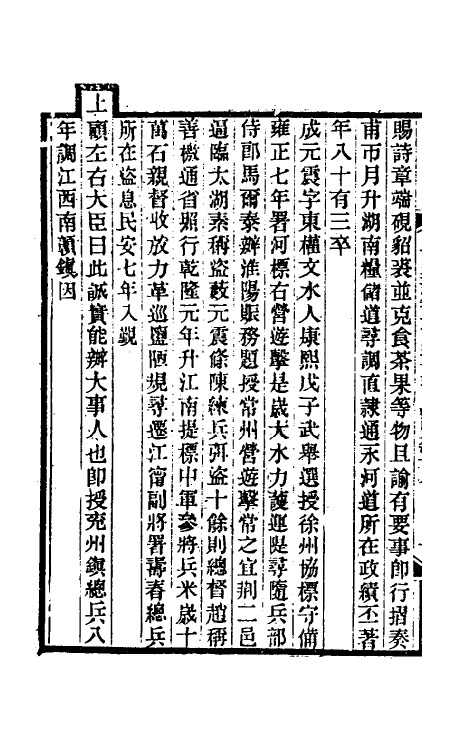 賜詩章端硯貂裘並克食茶果等物且諭有要事卽行摺奏
甫帀月升湖南糧儲道尋調直隷通永河道所在政績丕著
年八十有三卒
成元震字東權文水人康熙戊子武舉選授徐州協標守備
雍正七年署河標右營遊擊是歲大水力護運隄尋隨兵部
侍郎馬爾泰辦淮陽賑務題授常州營遊擊常之宜荆二邑
逼臨太湖素稱盜藪元震條陳練兵弭盜十餘則總督趙稱
善檄通省照行乾隆元年升江南提標中軍叅將兵米歲十
萬石親督收放力革巡鹽陋規尋遷江甯副將署壽春總兵
所在盜息民安七年入覲
上顧左右大臣曰此誠實能辦大事人也卽授兖州鎭總兵八
年調江西南贛鎭因